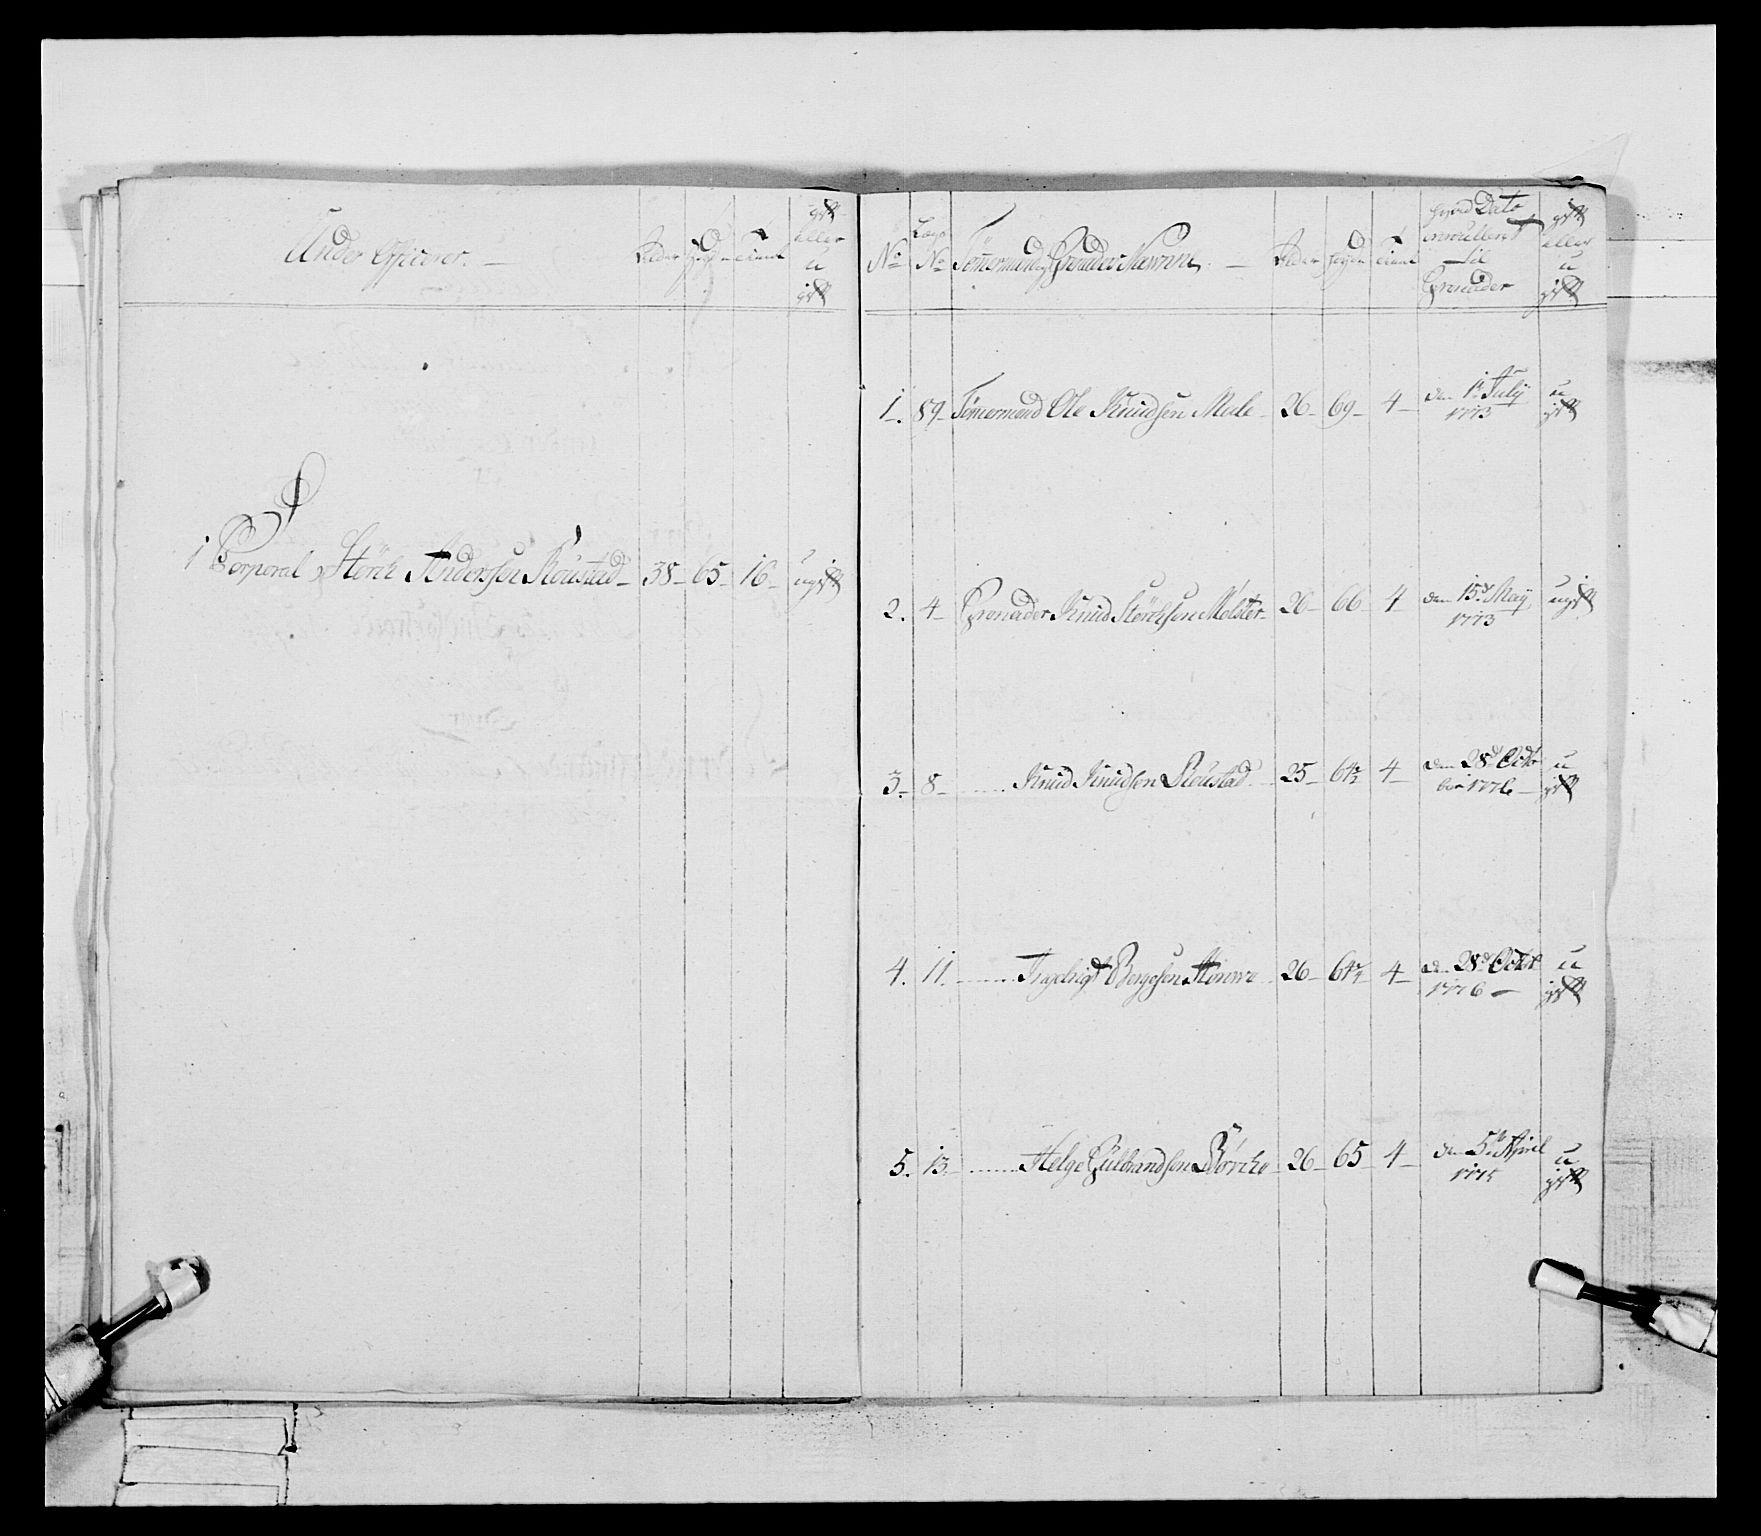 Under Officerer. —
Alder
Høyde
Tient
gift
eller
u
gift
1 Corporal Störk Andersen Roustad — 38 — 65 — 16 — ugift
No
Lægs
No
Tömermand og Grenader Navnene —
Alder
Høyde
Tient
hvad Dato
enrulleret
til
Grenader
gift
eller
u
gift
1. 89 — Tömermand Ole Knudsen Mele — 26 — 69 — 4 — den 1te July u
1773 gift
2. 4 — Grenader Knud Störksen Mølster — 26 — 66 4 den 15d May ugift
1773
3. — 8 — Knud Knudsen Roustad 25 — 64½ 4 — den 28d Octo u
ber 1776 — gift
4. 11. Ingebrigt Bergesen 26 — 4 — den 28d Octbr u
1776 — gift
5. 13. Helge Gulbrandsen 26 — 65 — 4 — den 5te April u
1775 gift